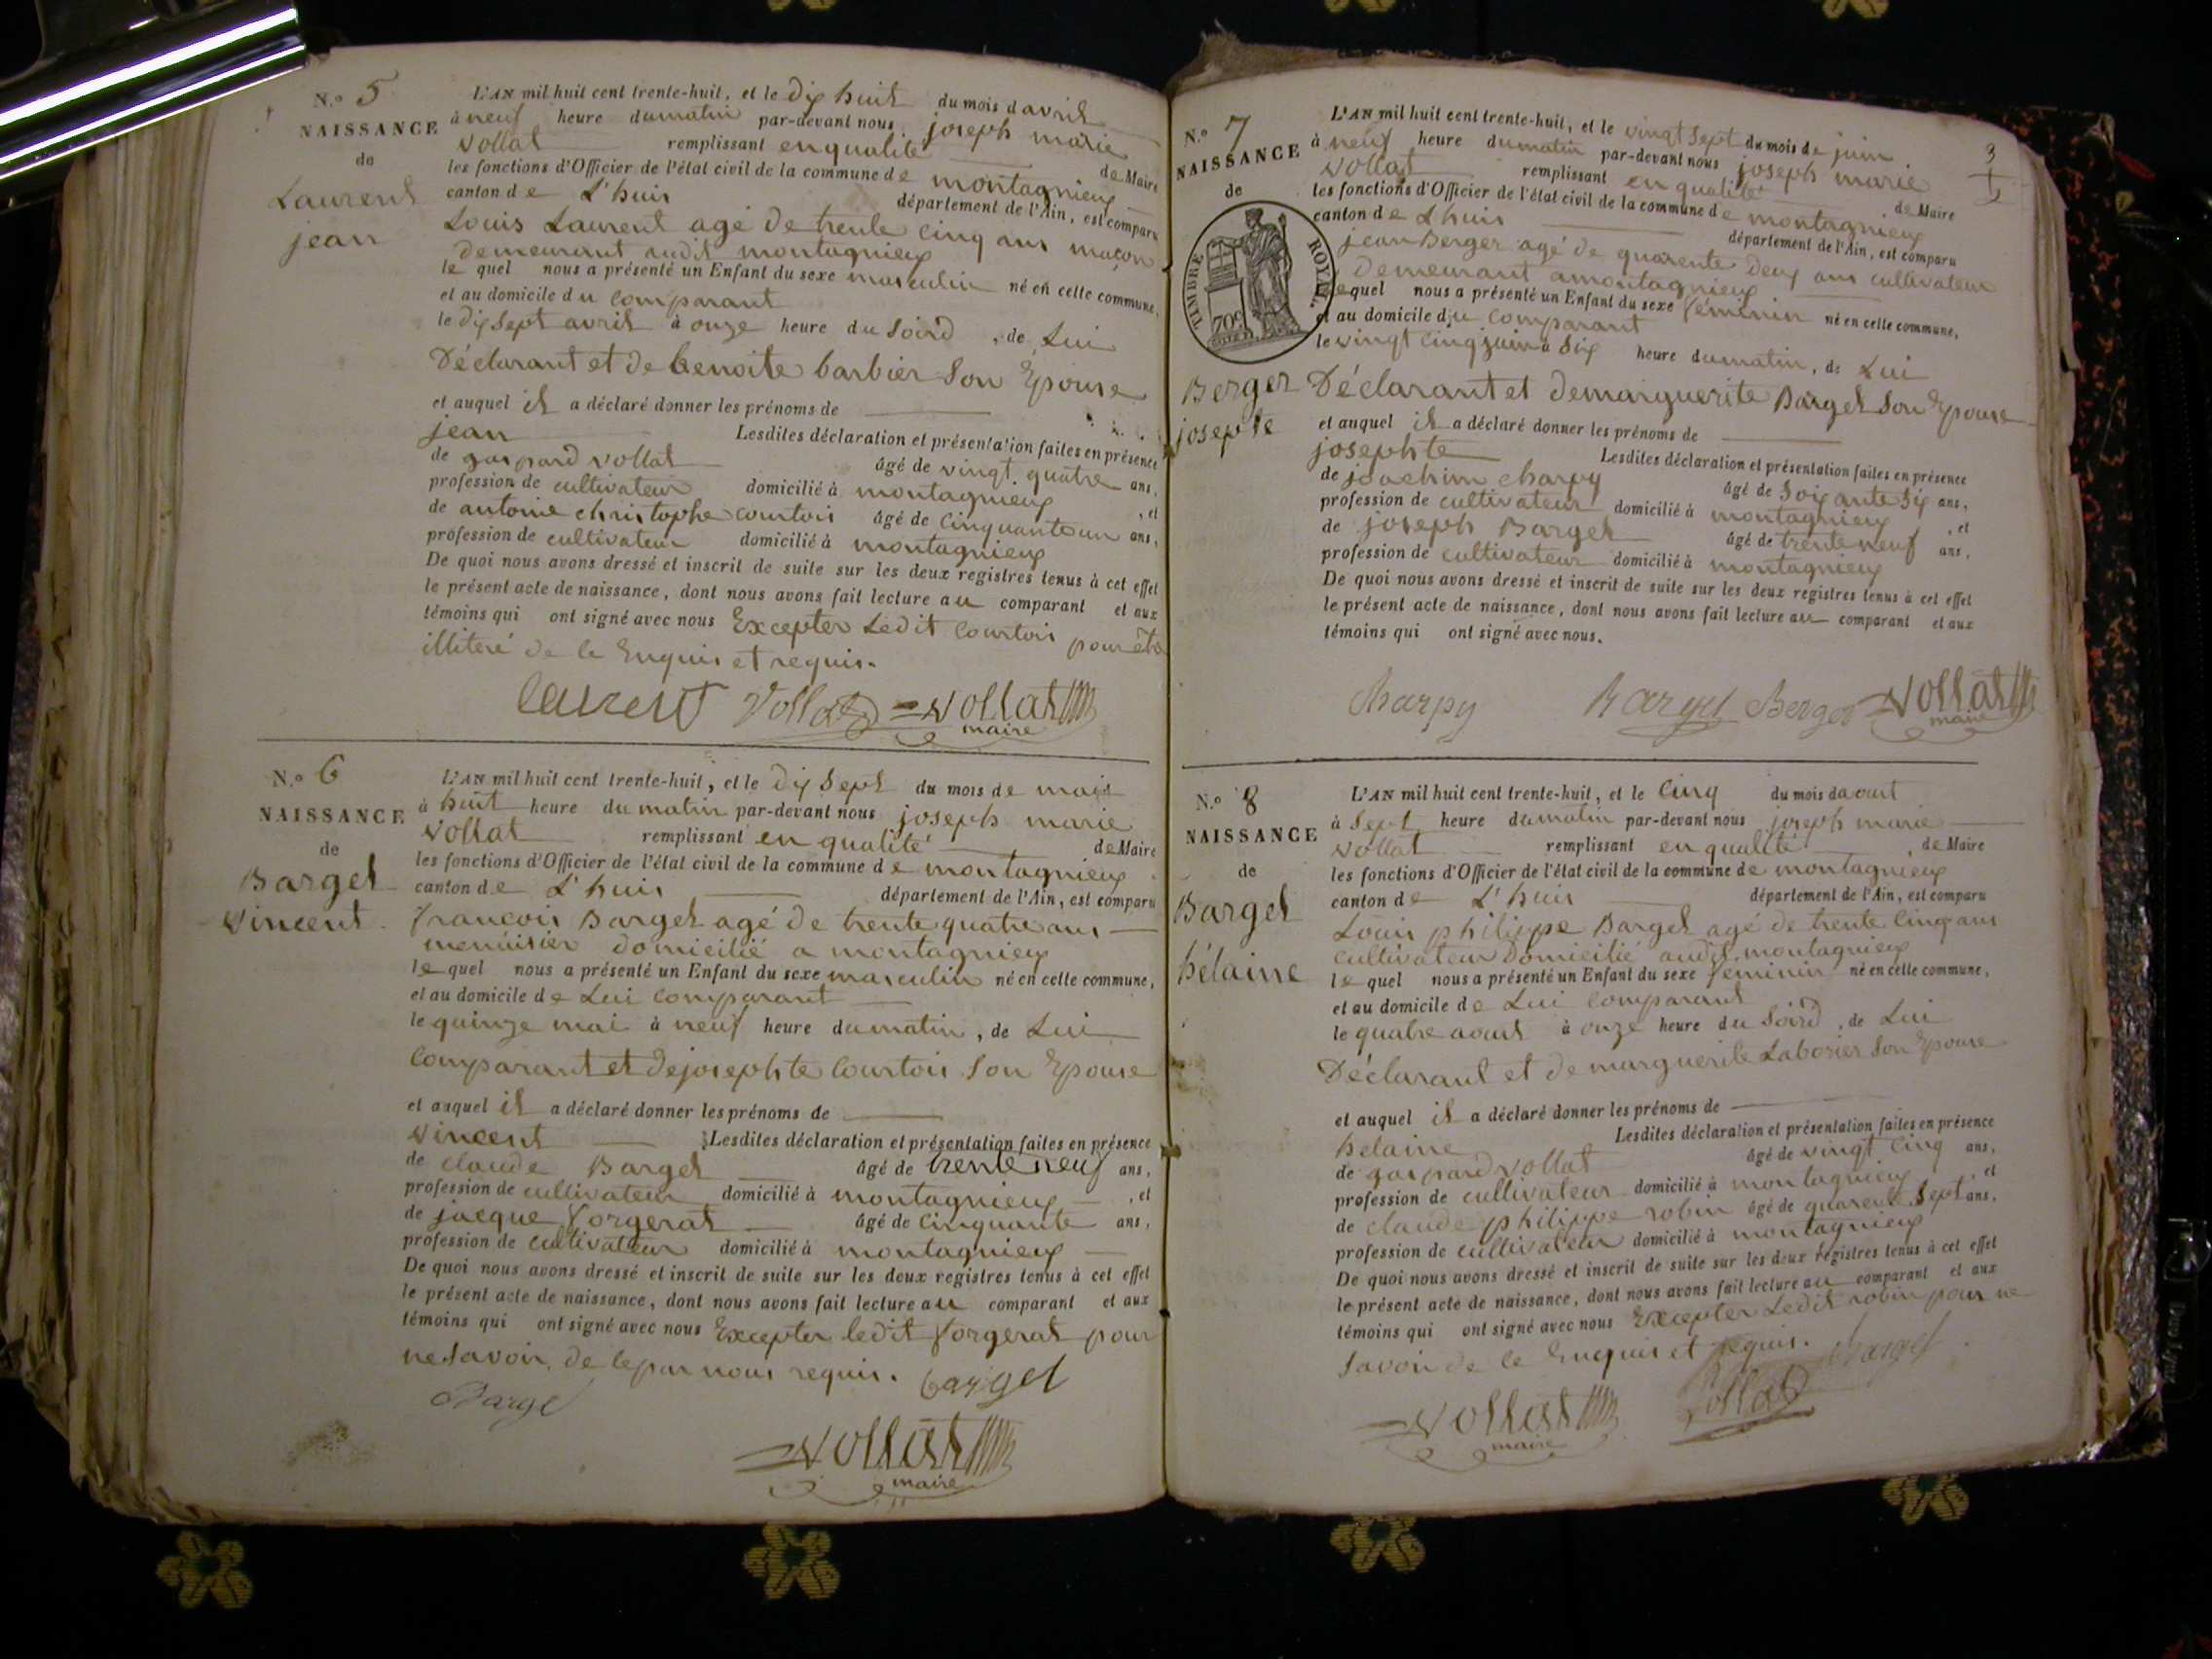 N.o 5
NAISSANCE
de
Laurent
jean
L'AN mil huit cent trente-huit, et le dix huit du mois d avril
à neuf heure du matin par-devant nous joseph marie
vollat remplissant en qualité de Maire
les fonctions d'Officier de l'état civil de la commune de montagnieux
canton de L'huis département de l'Ain, est comparu
Louis Laurent agé de trente cinq ans maçon
demeurant audit montagnieux
le quel nous a présenté un Enfant du sexe masculin né en cette commune,
et au domicile du comparant
le dix sept avril à onze heure du soird, de Lui
Déclarant et de benoite barbier son Epouse
et auquel il a déclaré donner les prénoms de
jean Lesdites déclaration et présentation faites en présence
de gaspard vollat âgé de vingt quatre ans,
profession de cultivateur domicilié à montagnieux, et
de antoine christophe courtois âgé de cinquante un ans,
profession de cultivateur domicilié à montagnieux
De quoi nous avons dressé et inscrit de suite sur les deux registres tenus à cet effet
le présent acte de naissance, dont nous avons fait lecture au comparant et aux
témoins qui ont signé avec nous Excepter Ledit courtois pour être
illiteré de ce Enquis et requis.
Laurent Vollat vollat
maire
N.o 6
NAISSANCE
de
Barget
vincent
L'AN mil huit cent trente-huit, et le dix sept du mois de mai
à huit heure du matin par-devant nous joseph marie
vollat remplissant en qualité de Maire
les fonctions d'Officier de l'état civil de la commune de montagnieux
canton de L'huis département de l'Ain, est comparu
francois Barget agé de trente quatre ans
menuisier domicilié a montagnieux
le quel nous a présenté un Enfant du sexe masculin né en cette commune,
et au domicile de Lui comparant
le quinze mai à neuf heure du matin, de Lui
comparant et de josephte Courtois son Epouse
et auquel il a déclaré donner les prénoms de
vincent Lesdites déclaration et présentation faites en présence
de claude Barget âgé de trente neuf ans,
profession de cultivateur domicilié à montagnieux, et
de jacque Vorgerat âgé de cinquante ans,
profession de cultivateur domicilié à montagnieux
De quoi nous avons dressé et inscrit de suite sur les deux registres tenus à cet effet
le présent acte de naissance, dont nous avons fait lecture au comparant et aux
témoins qui ont signé avec nous Excepter ledit Vorgerat pour
ne savoir, de ce par nous requis. barget
Barget
vollat
maire
N.o 7
NAISSANCE
de
TIMBRE ROYAL
70c
Berger
josepte
3
L'AN mil huit cent trente-huit, et le vingt sept du mois de juin.
à neuf heure du matin par-devant nous joseph marie
vollat remplissant en qualité de Maire
les fonctions d'Officier de l'état civil de la commune de montagnieux
canton de Lhuis département de l'Ain, est comparu
jean Berger agé de quarente deux ans cultivateur
demeurant a montagnieux
lequel nous a présenté un Enfant du sexe féminin né en cette commune,
et au domicile du comparant
le vingt cinq juin à six heure du matin, de Lui
Déclarant et de marguerite Barget son Epouse
et auquel il a déclaré donner les prénoms de
josephte Lesdites déclaration et présentation faites en présence
de joachim charpy âgé de soixante six ans,
profession de cultivateur domicilié à montagnieux, et
de joseph Barget âgé de trente neuf ans,
profession de cultivateur domicilié à montagnieux
De quoi nous avons dressé et inscrit de suite sur les deux registres tenus à cet effet
le présent acte de naissance, dont nous avons fait lecture au comparant et aux
témoins qui ont signé avec nous.
Charpy Barget Berger vollat
maire
N.o 8
NAISSANCE
de
Barget
hélaine
L'AN mil huit cent trente-huit, et le cinq du mois daout
à sept heure du matin par-devant nous joseph marie
vollat remplissant en qualité de Maire
les fonctions d'Officier de l'état civil de la commune de montagnieux
canton de L'huis département de l'Ain, est comparu
Louis philippe Barget agé de trente cinq ans
cultivateur domicilié audit montagnieux
le quel nous a présenté un Enfant du sexe féminin né en cette commune,
et au domicile de Lui comparant
le quatre aout à onze heure du soird, de Lui
Déclarant et de marguerite Laborier son Epouse
et auquel il a déclaré donner les prénoms de
helaine Lesdites déclaration et présentation faites en présence
de gaspard vollat âgé de vingt cinq ans,
profession de cultivateur domicilié à montagnieux, et
de claude philippe robin âgé de quarente sept ans,
profession de cultivateur domicilié à montagnieux
De quoi nous avons dressé et inscrit de suite sur les deux registres tenus à cet effet
le présent acte de naissance, dont nous avons fait lecture au comparant et aux
témoins qui ont signé avec nous Excepter Ledit robin pour ne
savoir de ce Enquis et requis. Barget
vollat Vollat
maire